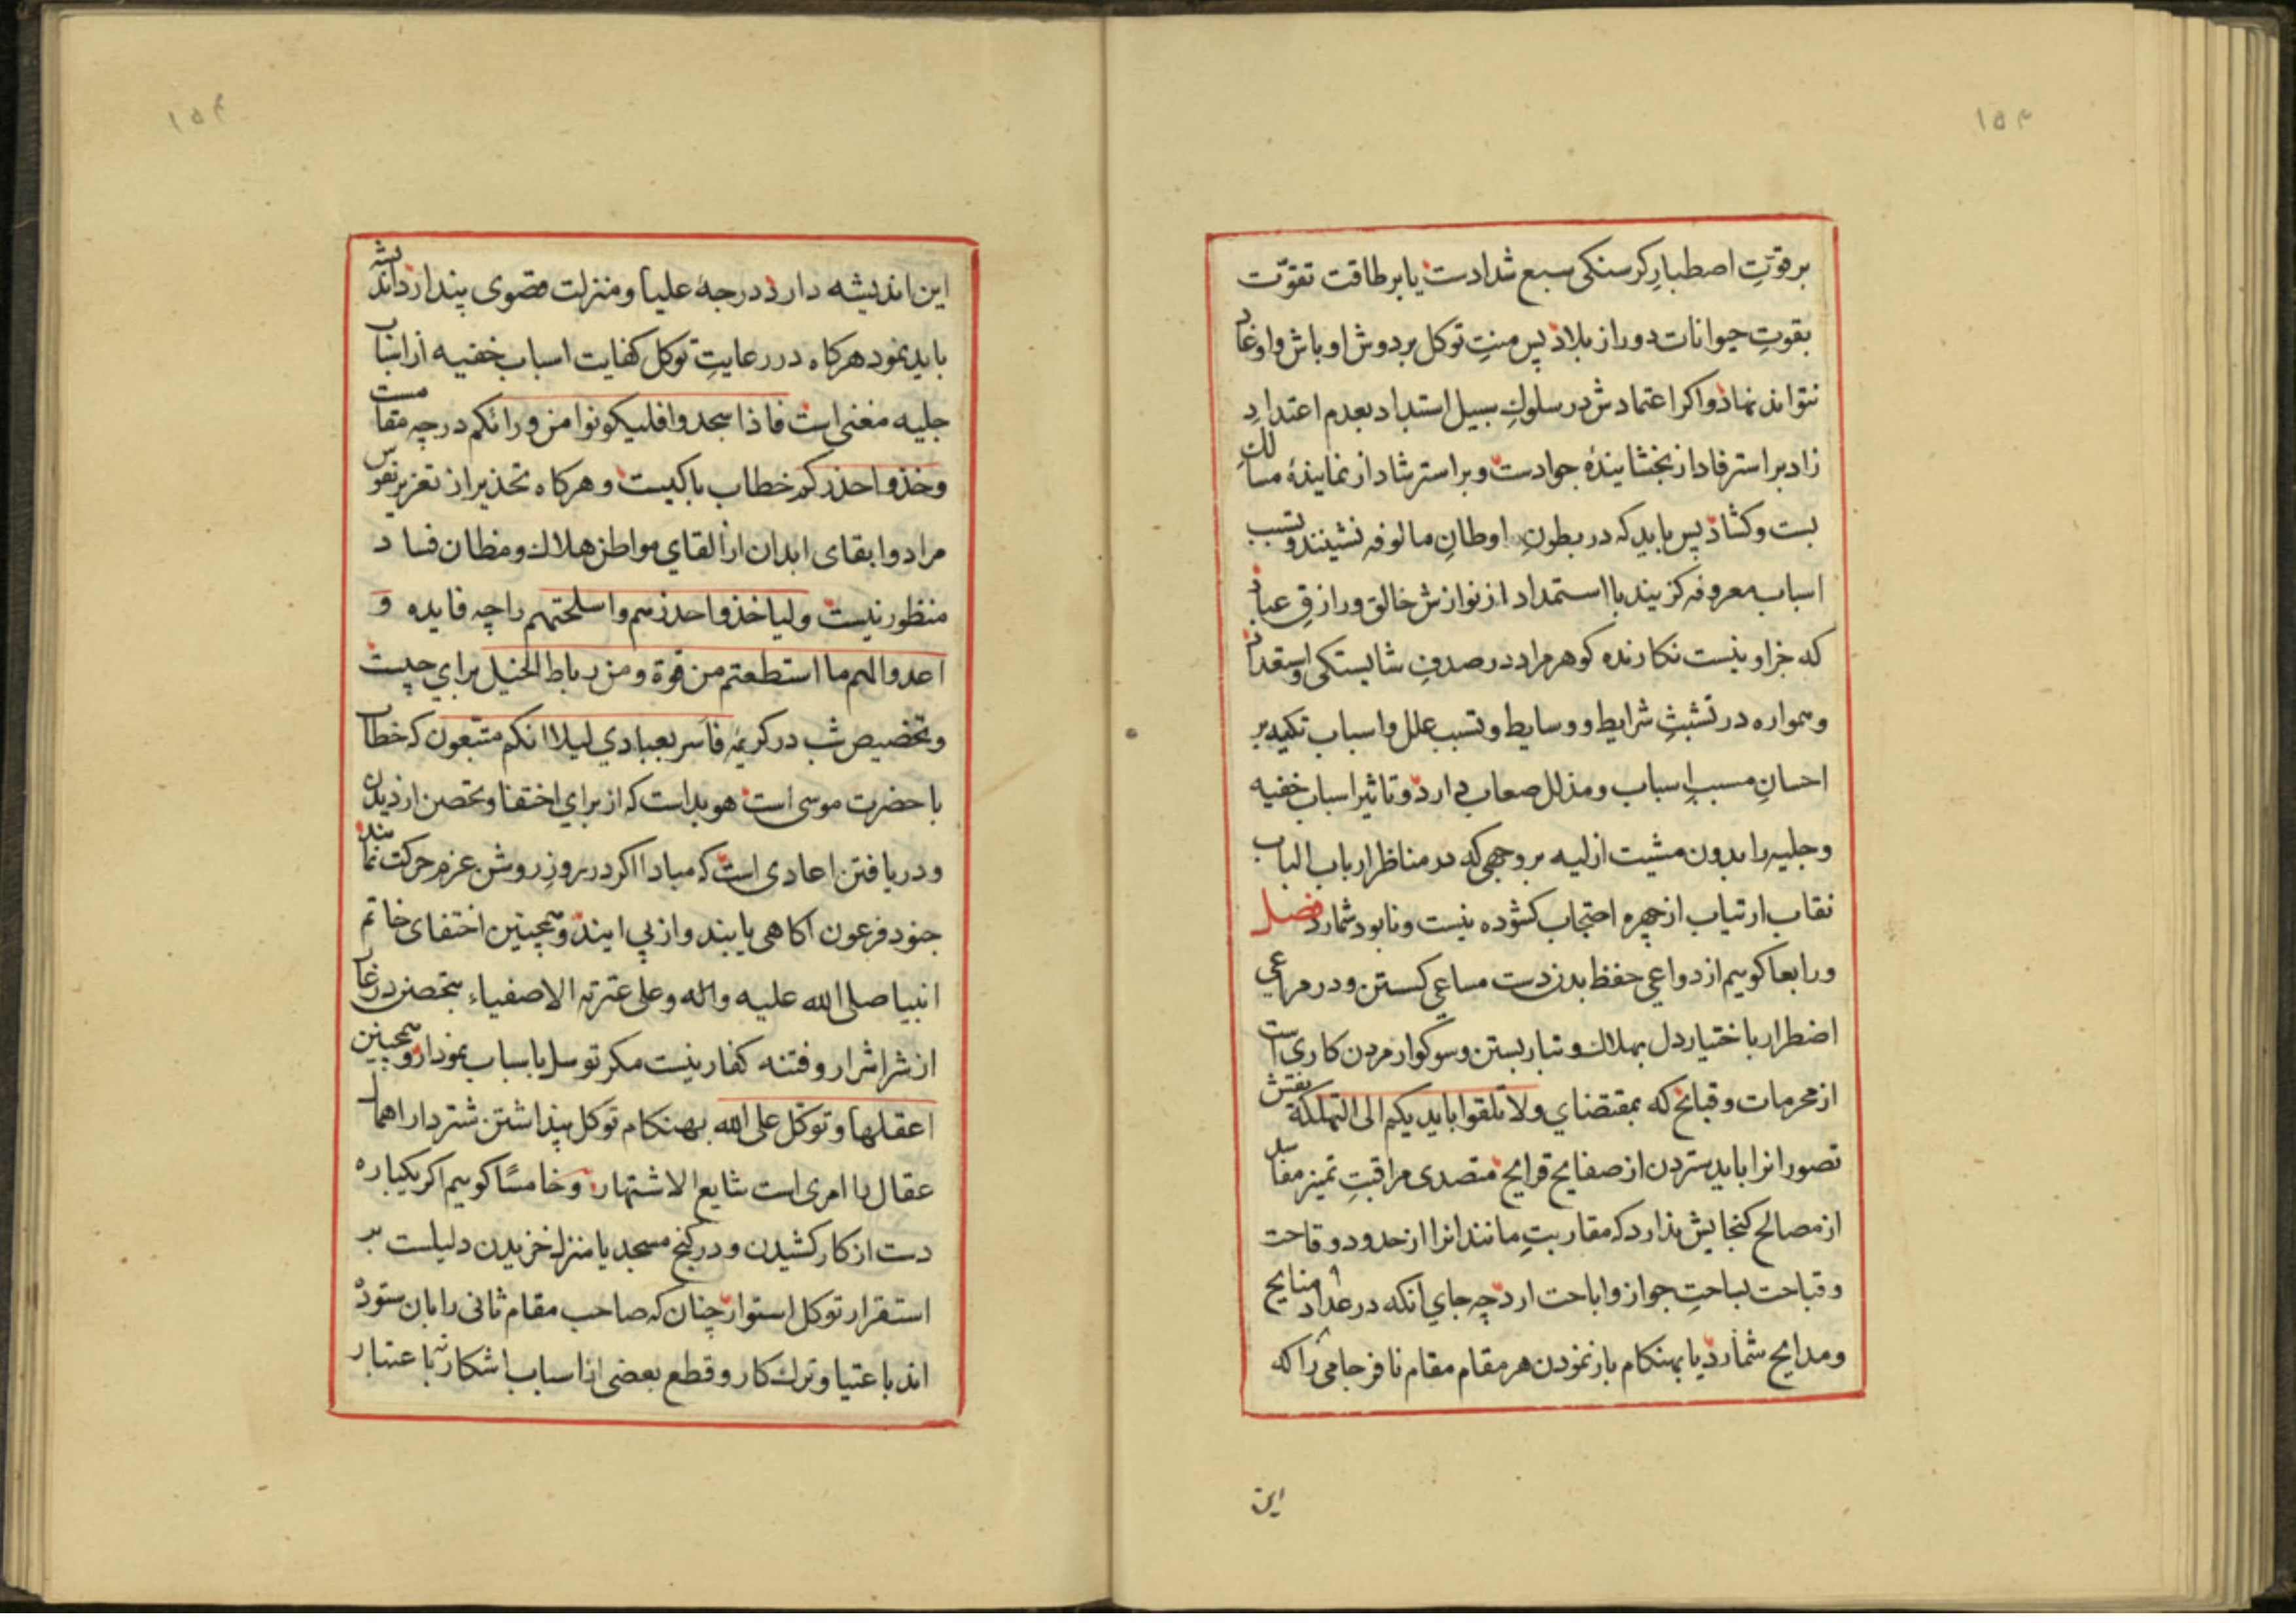 ۱۵۳
بر قوّتِ اصطبارِ کرسنکی سبع شدادست یا بر طاقت تقوّت
بقوتِ حیوانات دور از بلاد پس منتِ توکل بر دوش اوباش و اوغاد
نتواند نهاد و اکر اعتمادش در سلوکِ سبیل استبداد بعدم اعتدادِ
زاد بر استرفاد از بخشایندهٔ جوادست و بر استرشاد از نمایندهٔ مسالکِ
بست و کشاد پس باید که در بطونِ اوطانِ مالوفه نشینند و تسبب
اسباب معروفه کزینند با استمداد از نوازش خالق و رازقِ عباد
که جز او نیست نکارنده کوهر مراد در صدفِ شایستکی و استعداد
و همواره در تشبثِ شرایط و وسایط و تسبب علل و اسباب تکیه بر
احسانِ مسببِ اسباب و مذلل صعاب دارد و تاثیر اسباب خفیه
و جلیه را بدون مشیت ازلیه بر وجهی که در مناظر ارباب الباب
نقاب ارتیاب از چهره احتجاب کشوده نیست و نابود شمارد فصل
و رابعا کوییم از دواعی حفظ بدن دست مساعی کسستن و در مراعی
اضطرار باختیار دل بهلاک و تبار بستن و سوکوار مردن کاری است
از محرمات و قبایح که بمقتضای ولا تلقوا بایدیکم الی التهلکة نقش
تصور انرا باید ستردن از صفایح قرایح متصدی مراقبتِ تمیز مفاسد
از مصالح کنجایش ندارد که مقاربتِ مانند انرا از حدود وقاحت
و قباحت بساحتِ جواز و اباحت ارد چه جای انکه در عداد منایح
و مدایح شمارد یا بهنکام باز نمودن هر مقام مقام نافرجامی را که
این
۱۵۴
این اندیشه دارد درجهٔ علیا و منزلت قصوی پندارد اندیشه
باید نمود هرکاه در رعایتِ توکل کفایت اسباب خفیه از اسباب
جلیه مغنی است فاذا سجدوا فلیکونوا من ورائکم در چه مقامست
و خذوا حذرکم خطاب با کیست و هرکاه تحذیر از تغریر نفوس
مراد و ابقای ابدان از القای مواطن هلاک و مظان فساد
منظور نیست ولیاخذوا حذرهم واسلحتهم را چه فایده و
اعدوا لهم ما استطعتم من قوة ومن رباط الخیل برای چیست
و تخصیص شب در کریمهٔ فاسر بعبادی لیلا انکم متبعون که خطاب
با حضرت موسی است هویداست که از برای اختفا و تحصن از دیدن
و دریافتن اعادی است که مبادا اکر در روز روشن عزم حرکت نمایند
جنود فرعون اکاهی یابند و از پی ایند و همچنین اختفای خاتم
انبیا صلی الله علیه واله وعلی عترته الاصفیاء بتحصن در غار
از شر اشرار و فتنه کفار نیست مکر توسل باسباب نمودار و همچنین
اعقلها وتوکل علی الله بهنکام توکل پنداشتن شتردار اهمال
عقال را امری است شایع الاشتهار و خامسًا کوییم اکر یکباره
دست از کار کشیدن و در کنج مسجد یا منزل خزیدن دلیلست بر
استقرار توکل استوار چنان که صاحب مقام ثانی را بان ستوده
اند باعتیا و ترک کار و قطع بعضی از اسباب اشکار نه باعتبار